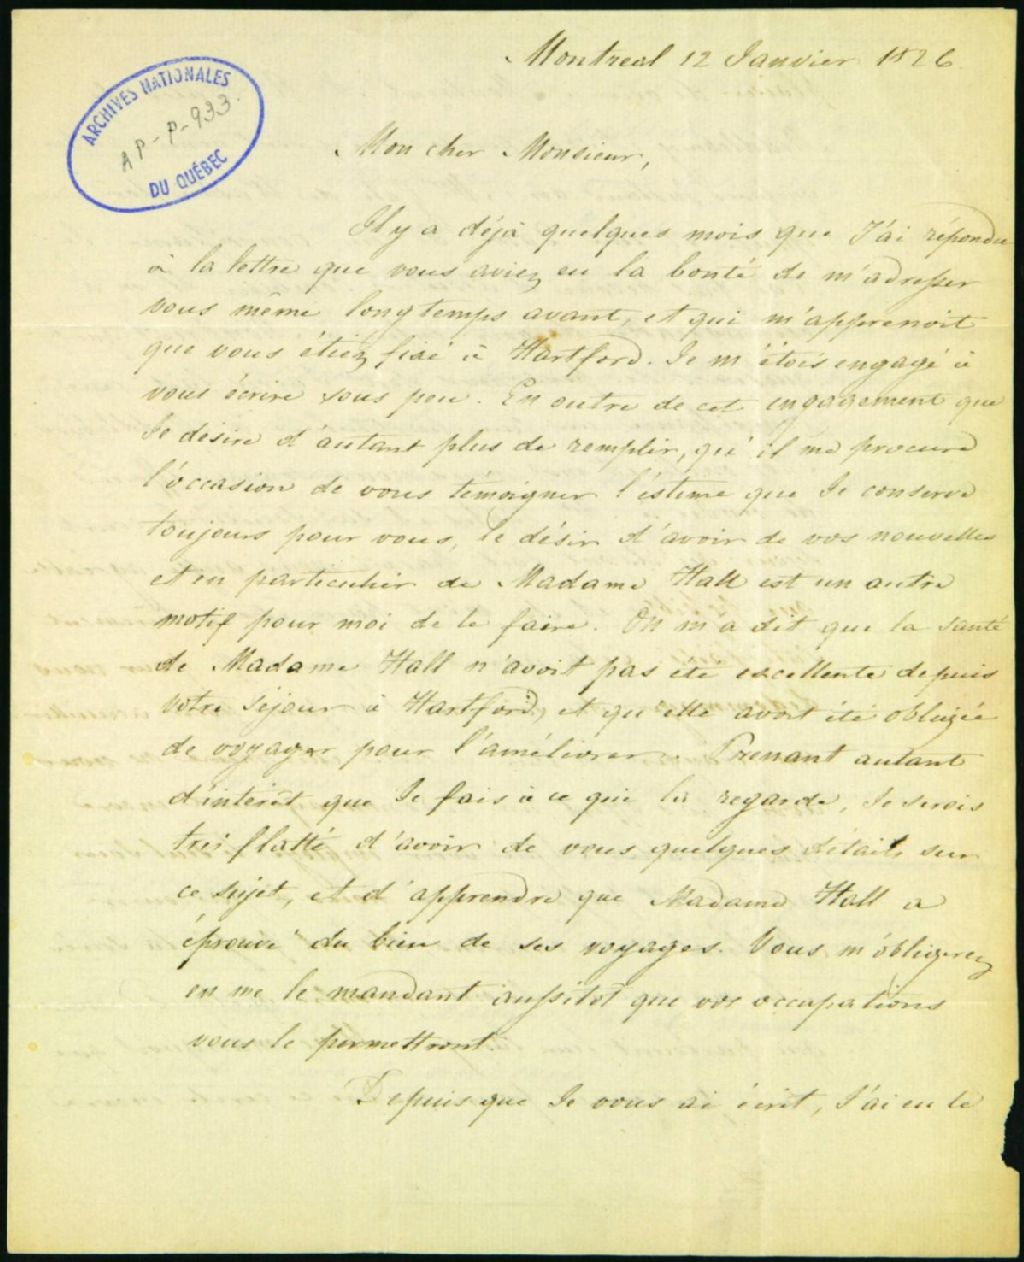 Montreal 12 Janvier 1826
ARCHIVES NATIONALES
AP-P-933.
DU QUÉBEC
Mon cher Monsieur,
Il y a déjà quelques mois que J'ai répondu
à la lettre que vous aviez eu la bonté de m'adresser
vous même longtemps avant, et qui m'apprenoit
que vous étiez fixé à Hartford. Je m'étois engagé à
vous écrire sous peu. En outre de cet engagement que
Je désire d'autant plus de remplir, qu'il me procure
l'occasion de vous témoigner l'estime que Je conserve
toujours pour vous, le désir d'avoir de vos nouvelles
et en particulier de Madame Hall est un autre
motif pour moi de le faire. On m'a dit que la santé
de Madame Hall n'avoit pas été excellente depuis
votre séjour à Hartford, et qu'elle avoit été obligée
de voyager pour l'améliorer. Prenant autant
d'intérêt que Je fais à ce qui la regarde, Je serois
très flatté d'avoir de vous quelques détails sur
ce sujet, et d'apprendre que Madame Hall a
éprouvé du bien de ses voyages. Vous m'obligerez
en me le mandant aussitot que vos occupations
vous le permettront.
Depuis que Je vous ai écrit, J'ai eu le